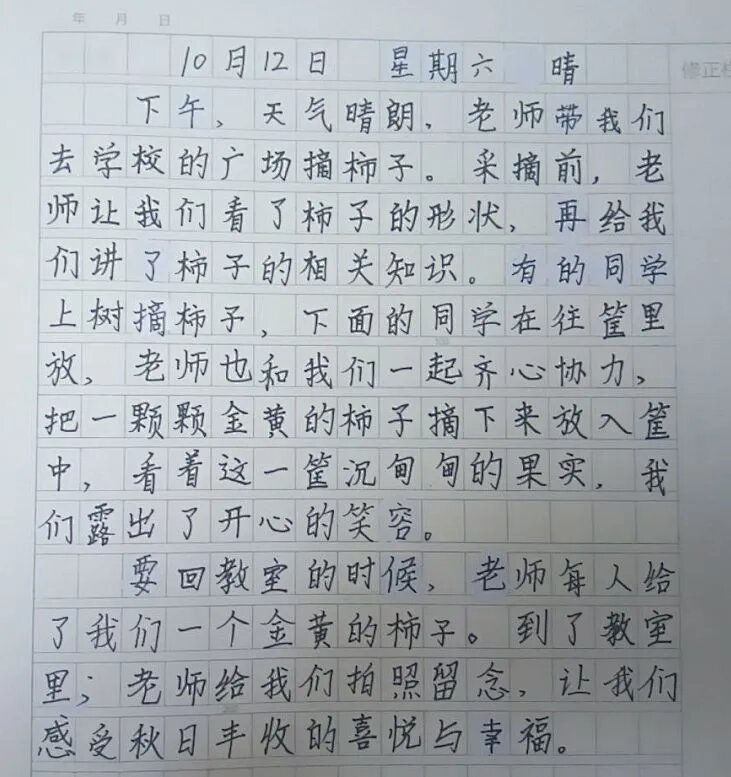 年 月 日
修正
10月12日 星期六 晴
下午，天气晴朗，老师带我们
去学校的广场摘柿子。采摘前，老
师让我们看了柿子的形状，再给我
们讲了柿子的相关知识。有的同学
上树摘柿子，下面的同学在往筐里
放，老师也和我们一起齐心协力，
把一颗颗金黄的柿子摘下来放入筐
中，看着这一筐沉甸甸的果实，我
们露出了开心的笑容。
要回教室的时候，老师每人给
了我们一个金黄的柿子。到了教室
里；老师给我们拍照留念，让我们
感受秋日丰收的喜悦与幸福。